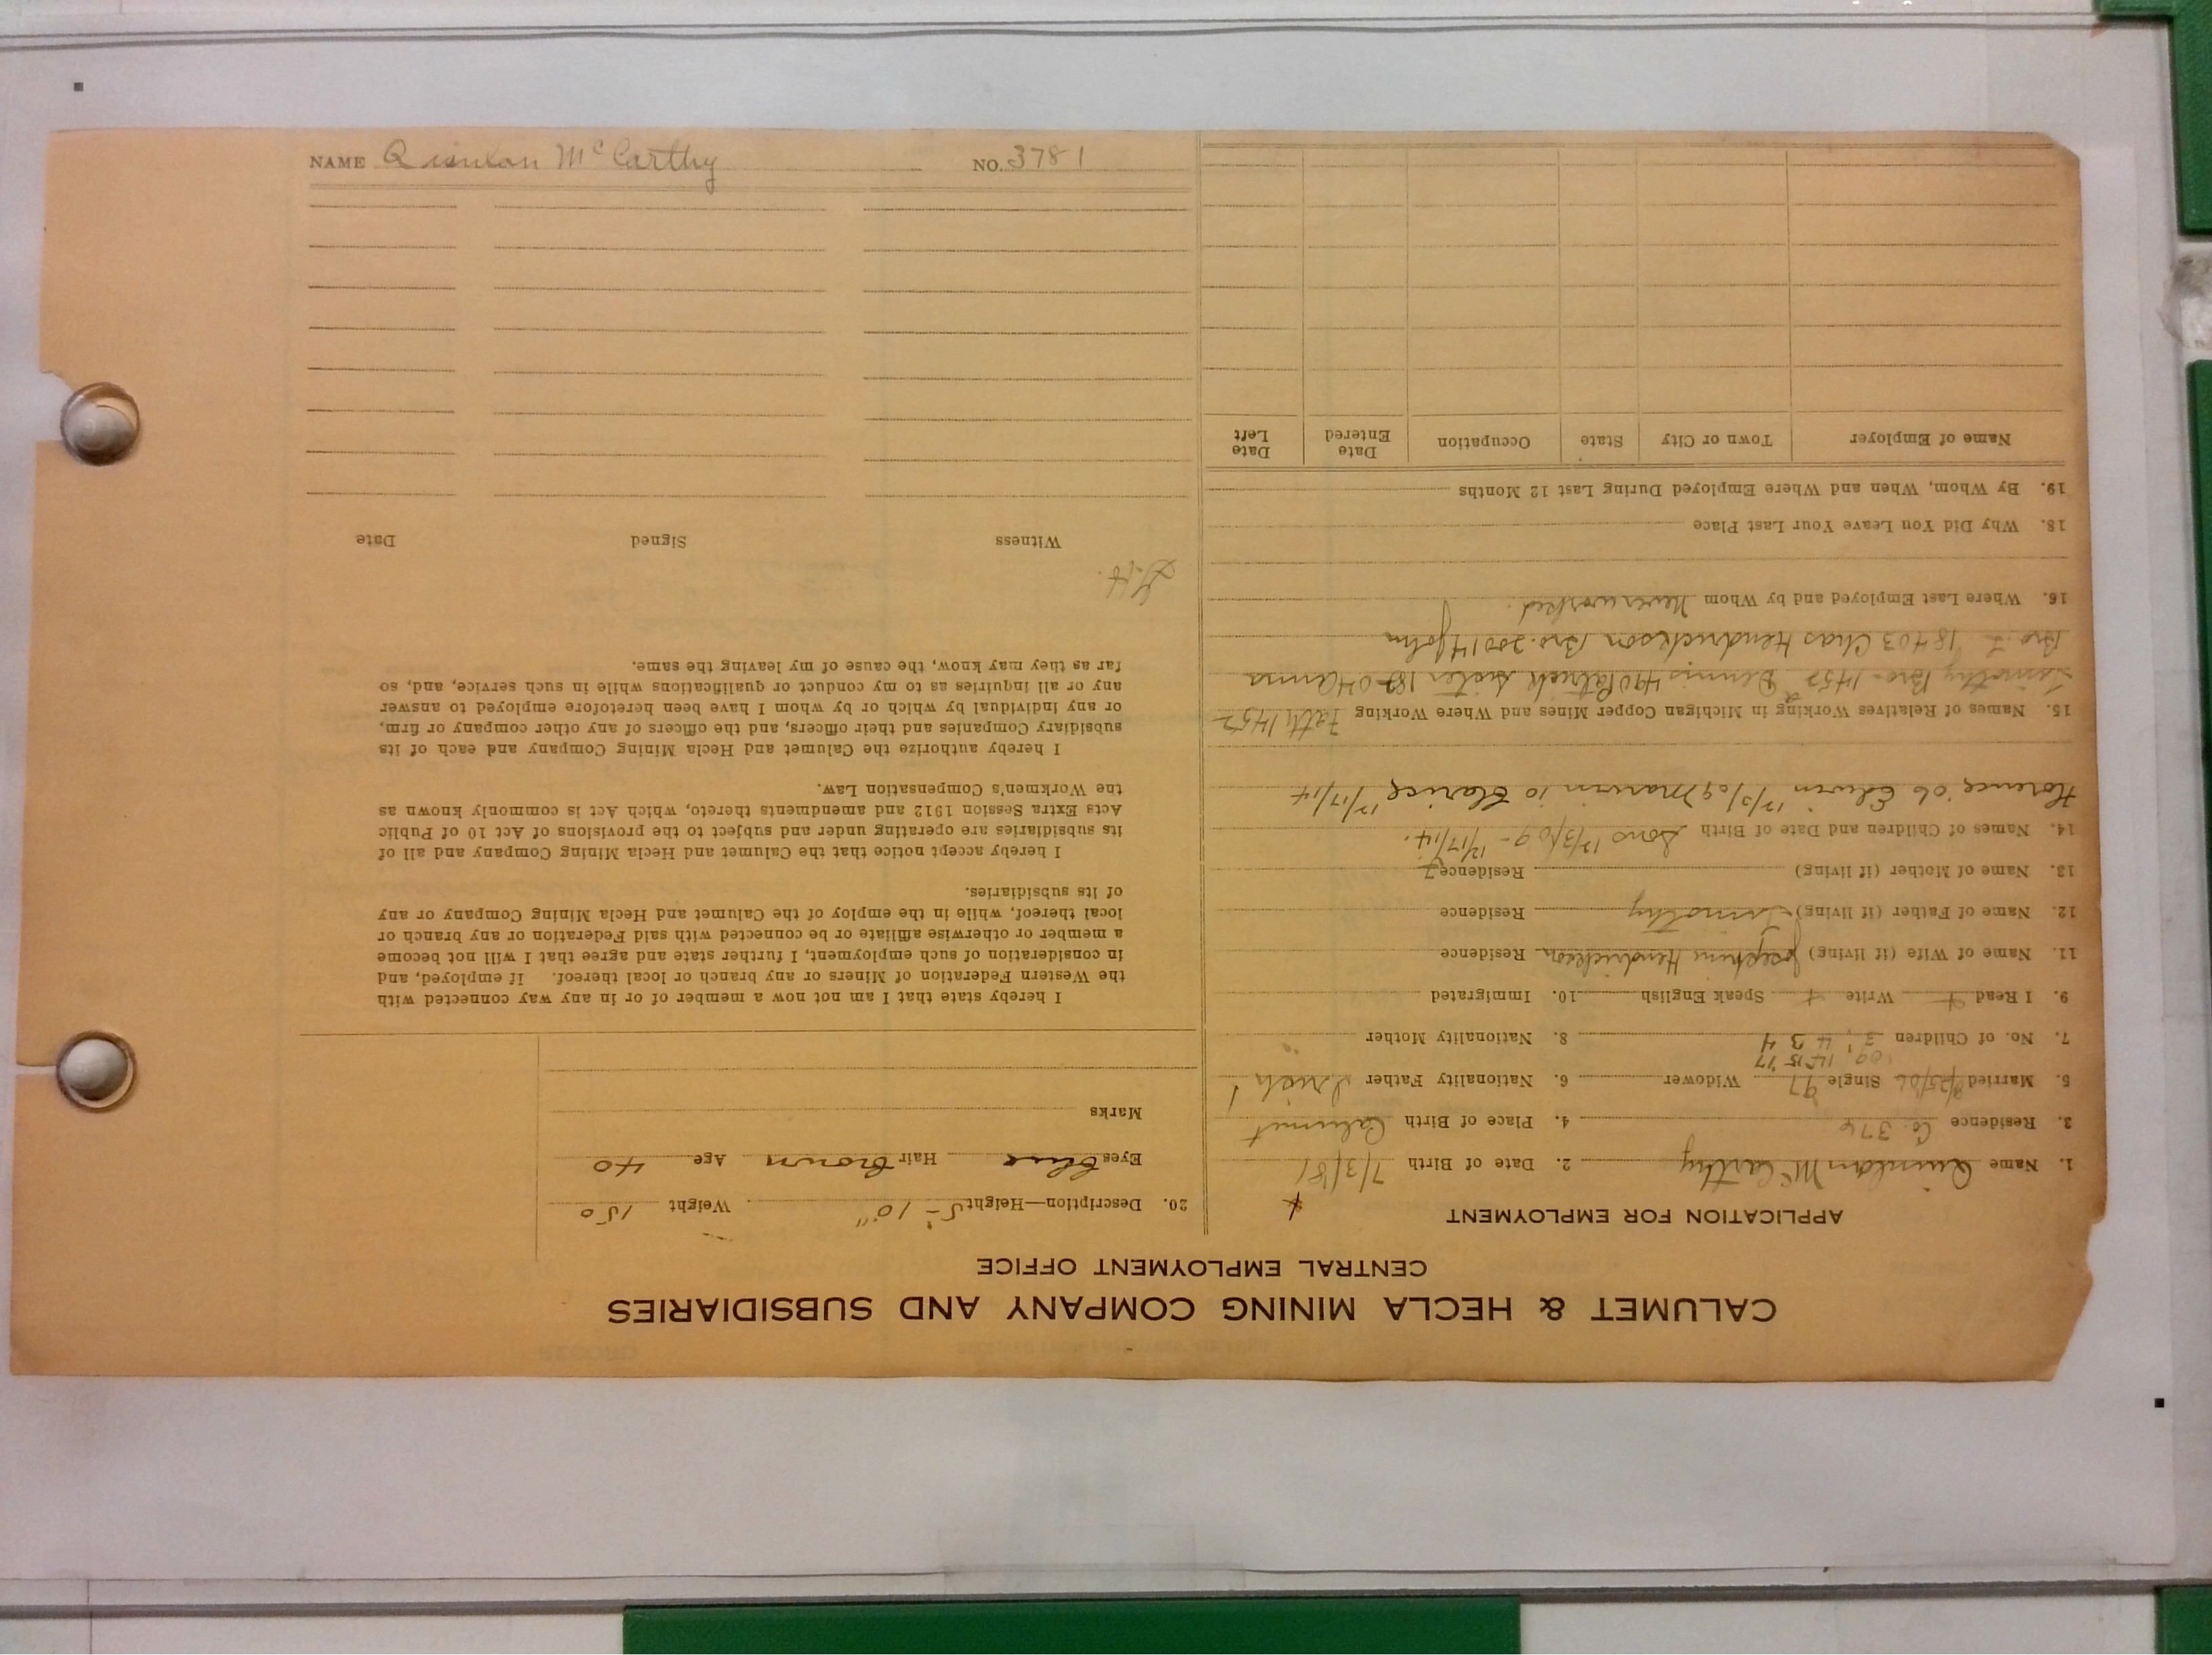 CALUMET & HECLA MINING COMPANY AND SUBSIDIARIES
CENTRAL EMPLOYMENT OFFICE
APPLICATION FOR EMPLOYMENT
1. Name Quinlan McCarthy 2. Date of Birth 7/3/81
3. Residence Co. 376 4. Place of Birth Calumet
5. Married 8/25/06 Single Widower 6. Nationality Father Irish
'09, 14 15 '17
7. No. of Children 3, 4 3 4 8. Nationality Mother
9. I Read Write Speak English 10. Immigrated
11. Name of Wife (if living) Josephine Hendrickson Residence
12. Name of Father (if living) Timothy Residence
13. Name of Mother (if living) Residence
14. Names of Children and Date of Birth Sons 12/3/09 - 12/17/14.
Florence '06 Edwin 12/3/09 Marvin 10 Clarice 12/17/14
15. Names of Relatives Working in Michigan Copper Mines and Where Working Fath 1452
Timothy Bro- 1452 Dennis 490 Patrick Sister Anna
Bro. L 18403 Chas Hendrickson Bro. 20014 John
16. Where Last Employed and by Whom Never worked.
18. Why Did You Leave Your Last Place
19. By Whom, When and Where Employed During Last 12 Months
Name of Employer Town or City State Occupation Date Entered Date Left
20. Description—Height 5'-10" Weight 150
Eyes blue Hair Brown Age 40
Marks
I hereby state that I am not now a member of or in any way connected with
the Western Federation of Miners or any branch or local thereof. If employed, and
in consideration of such employment, I further state and agree that I will not become
a member or otherwise affiliate or be connected with said Federation or any branch or
local thereof, while in the employ of the Calumet and Hecla Mining Company or any
of its subsidiaries.
I hereby accept notice that the Calumet and Hecla Mining Company and all of
its subsidiaries are operating under and subject to the provisions of Act 10 of Public
Acts Extra Session 1912 and amendments thereto, which Act is commonly known as
the Workmen's Compensation Law.
I hereby authorize the Calumet and Hecla Mining Company and each of its
subsidiary Companies and their officers, and the officers of any other company or firm,
or any individual by which or by whom I have been heretofore employed to answer
any or all inquiries as to my conduct or qualifications while in such service, and, so
far as they may know, the cause of my leaving the same.
Witness Signed Date
NAME Quinlan McCarthy NO. 3781